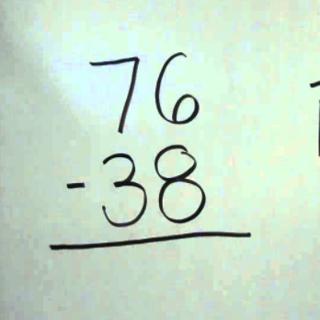 76
-38